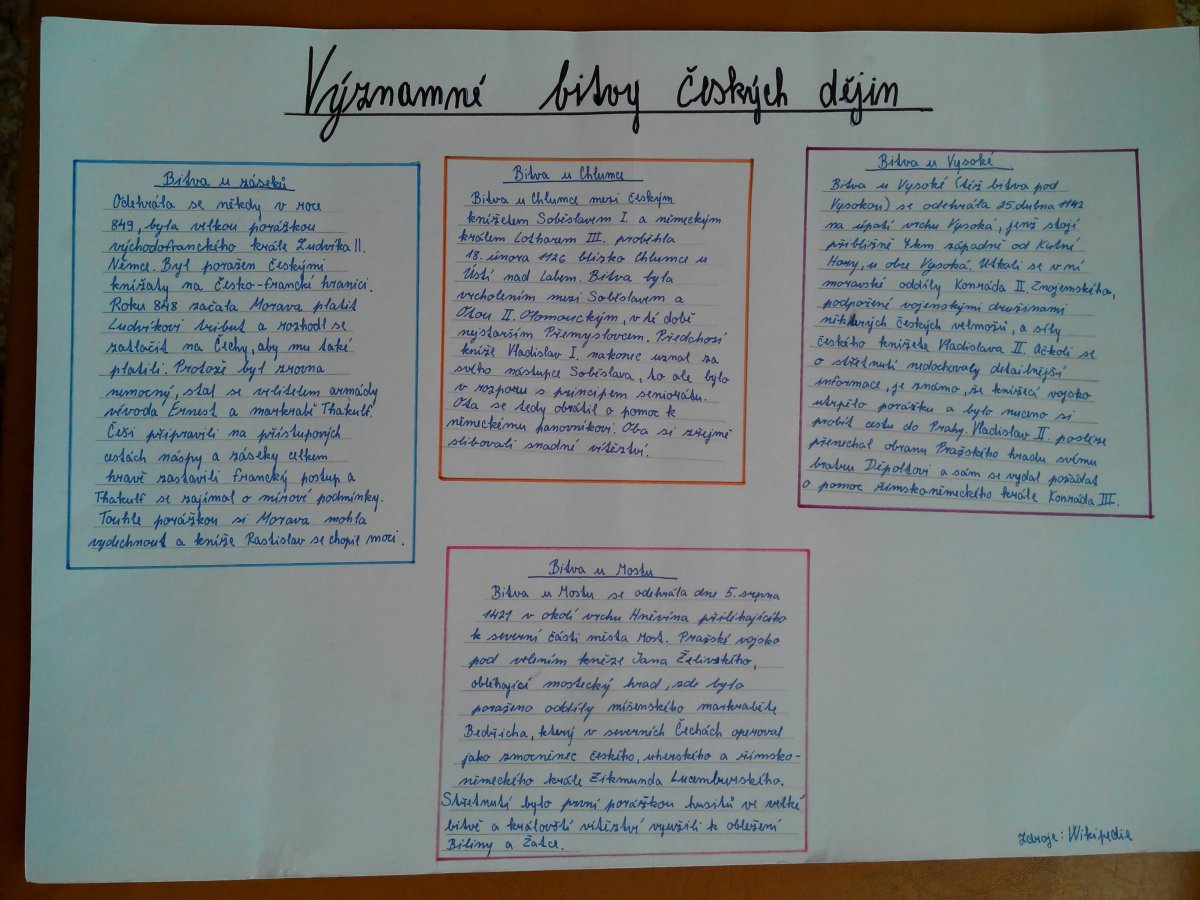 Významné bitvy českých dějin
Bitva u záseků
Odehrála se někdy v roce
849, byla velkou porážkou
východofranckého krále Ludvíka II.
Němce. Byl poražen českými
knížaty na česko-francké hranici.
Roku 848 začala Morava platit
Ludvíkovi tribut a rozhodl se
zatlačit na Čechy, aby mu také
platili. Protože byl zrovna
nemocný, stal se velitelem armády
vévoda Ernest a markrabě Thakulf.
Češi připravili na přístupových
cestách náspy a záseky celkem
hravě zastavili francký postup a
Thakulf se zajímal o mírové podmínky.
Touhle porážkou si Morava mohla
vydechnout a kníže Rastislav se chopil moci.
Bitva u Chlumce
Bitva u Chlumce mezi českým
knížetem Soběslavem I. a německým
králem Lotharem III. proběhla
18. února 1126 blízko Chlumce u
Ústí nad Labem. Bitva byla
vrcholením mezi Soběslavem a
Otou II. Olomouckým, v té době
nejstarším Přemyslovcem. Předchozí
kníže Vladislav I. nakonec uznal za
svého nástupce Soběslava, to ale bylo
v rozporu s principem seniorátu.
Ota se tedy obrátil o pomoc k
německému panovníkovi. Oba si zřejmě
slibovali snadné vítěztví.
Bitva u Vysoké
Bitva u Vysoké (též bitva pod
Vysokou) se odehrála 25.dubna 1142
na úpatí vrchu Vysoká, jenž stojí
přibližně 7km západně od Kutné
Hory, u obce Vysoká. Utkali se v ní
moravské oddíly Konráda II. Znojemského,
podpořené vojenskými družinami
některých českých velmožů, a síly
českého knížete Vladislava II. Ačkoli se
o střetnutí nedochovaly detailnější
informace, je známo, že knížecí vojsko
utrpělo porážku a bylo nuceno si
probít cestu do Prahy. Vladislav II. posléze
přenechal obranu Pražského hradu svému
bratru Děpoltovi a sám se vydal požádat
o pomoc římskoněmeckého krále Konráda III.
Bitva u Mostu
Bitva u Mostu se odehrála dne 5. srpna
1421 v okolí vrchu Hněvína přiléhajícího
k severní části města Most. Pražské vojsko
pod velením kněze Jana Želivského,
obléhající mostecký hrad, zde bylo
poraženo oddíly míšenského markraběte
Bedřicha, který v severních Čechách operoval
jako zmocněnec českého, uherského a římsko-
německého krále Zikmunda Lucemburského.
Střetnutí bylo první porážkou husitů ve velké
bitvě a královští vítěztví využili k obležení
Bíliny a Žatce.
Zdroje: Wikipedie